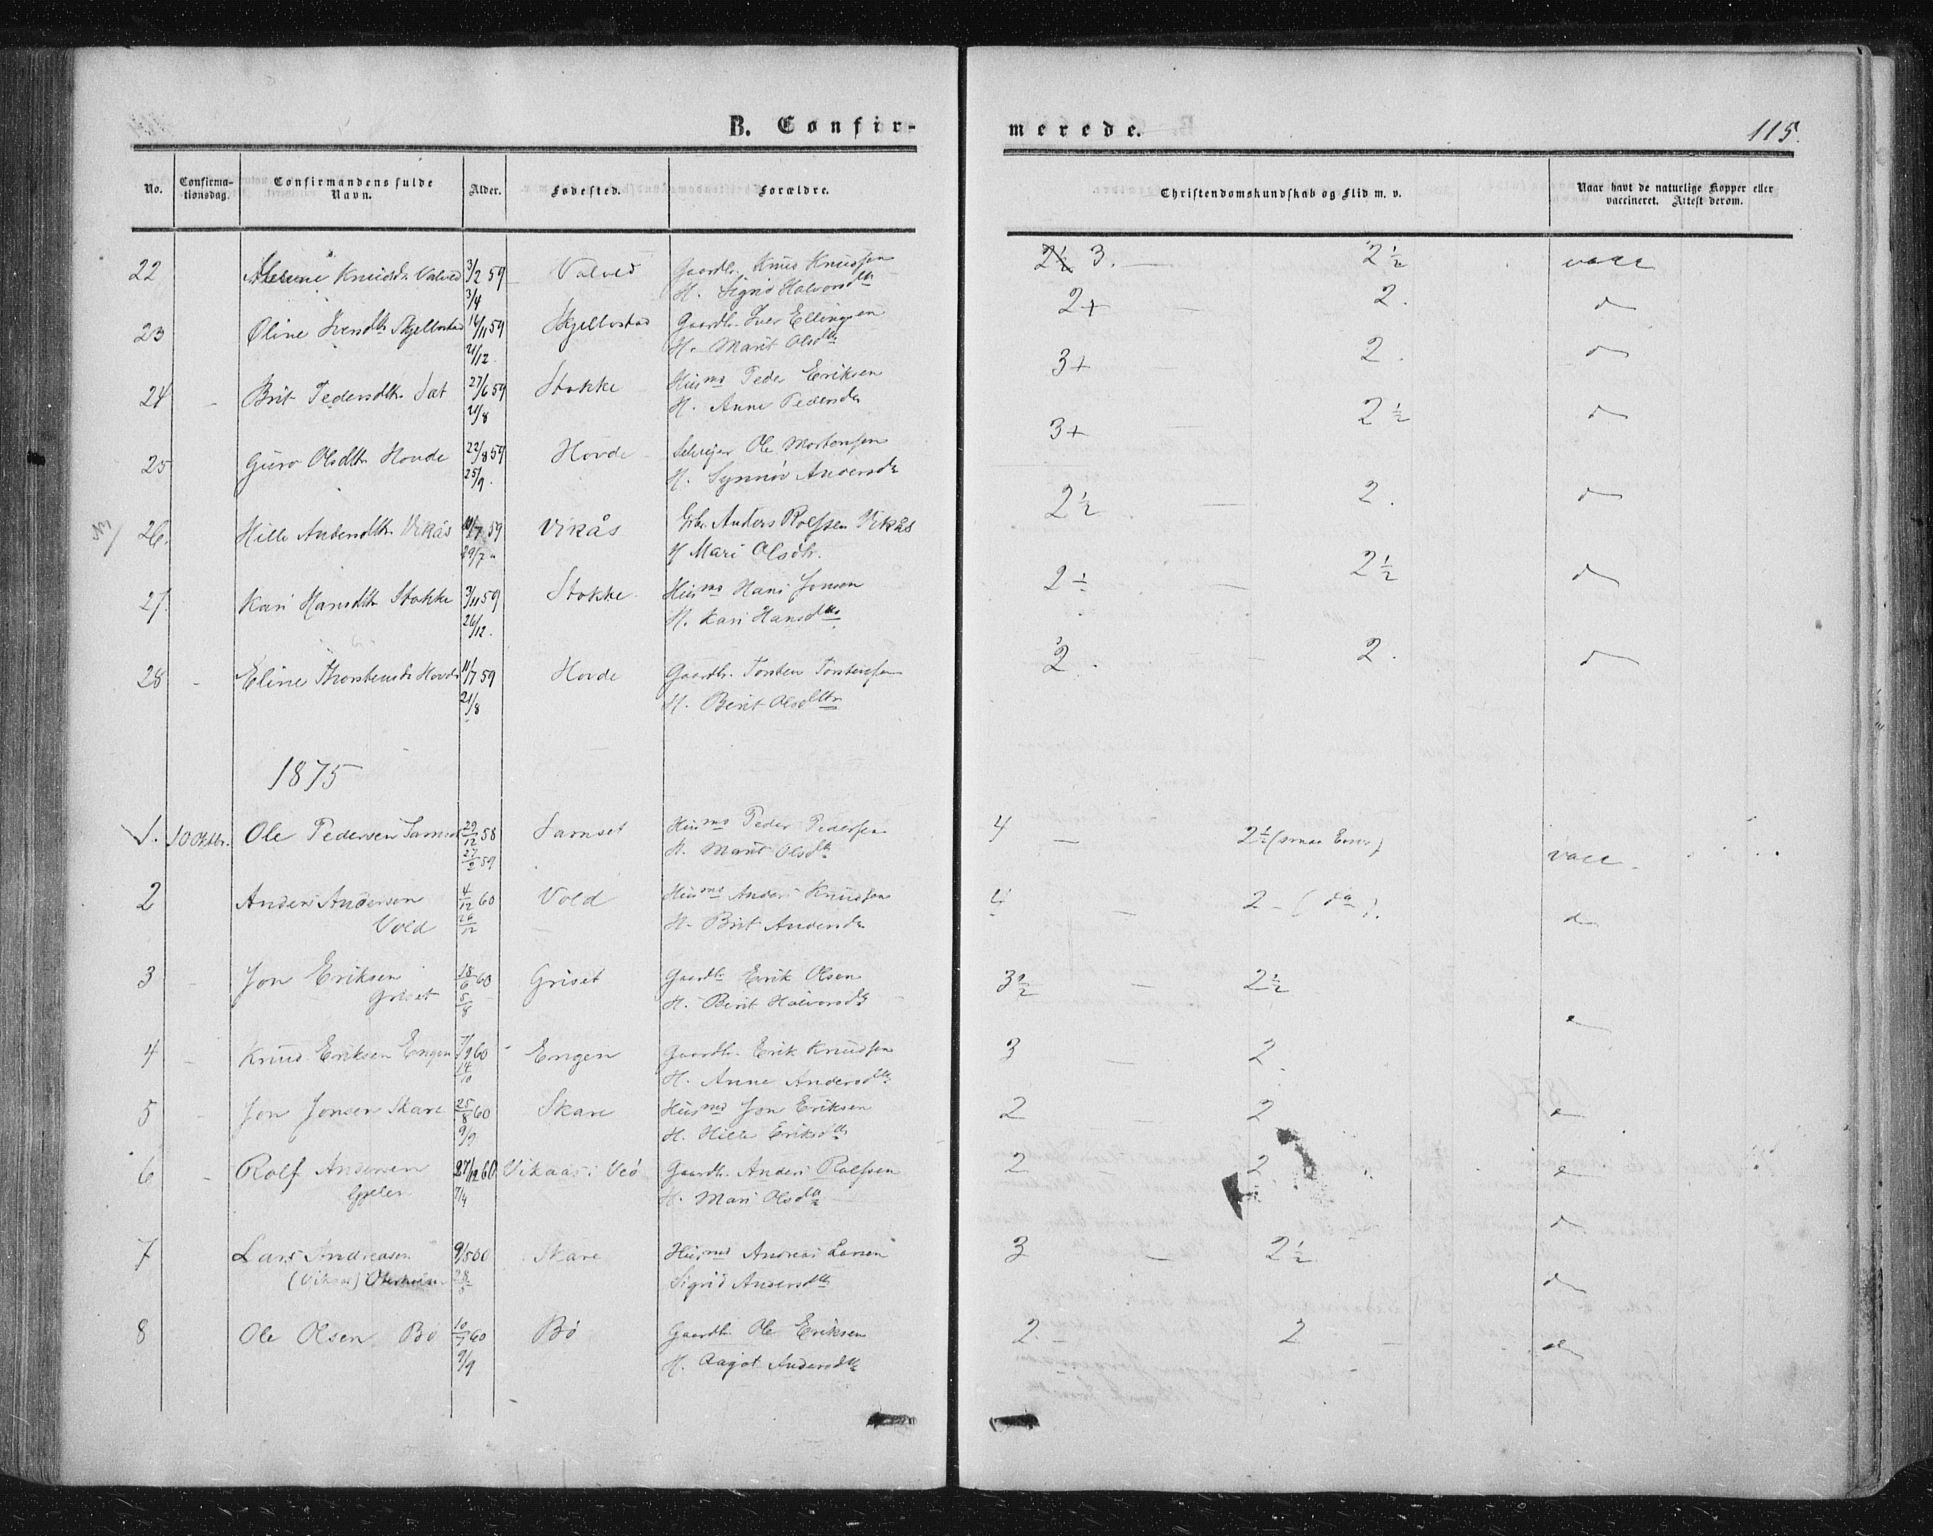 B. Confir-
merede.
115.
No.
Confirma-
tionsdag.
Confirmandens fulde
Navn.
Alder.
Fødested.
Forældre.
Christendomskundskab og Flid m. v.
Naar havt de naturlige Kopper eller
vaccineret. Attest derom.
22 Knudsdtr Valved 3/2 59 Valved Gaardbr. Knud Knudsen 2½ 3. — 2½ vacc
3/4 H. Sigrid Halvorsdtr
23 Oline Iversdtr Skjelbostad 16/11 59 Skjelbostad Gaardbr. Iver Ellingsen 2+ 2. d
21/12. H. Marit Olsdtr
24 Brit Pedersdtr Sæt 27/6 59 Stokke Husmd Peder Eriksen 3+ 2. d
21/8 H. Anne Pedersdtr
25 Guro Olsdtr Hovde 22/8 59 Hovde Selveier Ole Mortensen 3+ 2½ d
25/9. H. Synnøv Andersdtr
26. Hille Andersdtr Vikås 11/7 59 Vikås Gbr. Anders Rolfsen Vikås 2½ 2. d
29/7 H Mari Olsdtr.
27. Kari Hansdtr Stokke 3/11 59 Stokke. Husmd Hans Jonsen 2÷ 2½ d
26/12. H. Kari Hansdtr
28 Eline Thorstensdtr Hovde 11/7 59 Hovde Gaardbr. Torsten Torstensen 2. 2. d
21/8 H. Berit Olsdtr
1875
1. 10 Oktbr. Ole Pedersen Samset 29/12 58 Samset Husmd Peder Pedersen 4 — 2½ vacc
27/2 59 H. Marit Olsdtr
2 Anders Andersen 4/12 60 Vold Husmd Anders Knudsen 4 — 2 – (do). d
Vold 26/12 H. Brit Andersdtr
3 Jon Eriksen 18/6 60 Griset Gaardbr Erik Olsen 3½ — 2½
Griset 5/8 H. Berit Halvorsdtr
4 Knud Eriksen Engen 7/9 60 Engen Gaardbr. Erik Knudsen 3 — 2.
14/10 H. Anne Andersdtr
5 Jon Jonsen Skare 25/8 60 Skare Husmd Jon Eriksen 2 2
9/9 H. Hille Eriksdtr
6 Rolf Andersen 27/12 60 Vikaas i Veø Gaardbr. Anders Rolfsen 2 2
7/4 H. Mari Olsdtr
7 Lars Andreasen 9/5 60 Skare Husmd Andreas Larsen 3 — 2½ d
(Vikaas) 28/5 Sigrid Andersdtr
8 Ole Olsen Bø 10/7 60 Bø Gaardbr Ole Eriksen 2. — 2 — d
9/9 H. Ragot Andersdtr